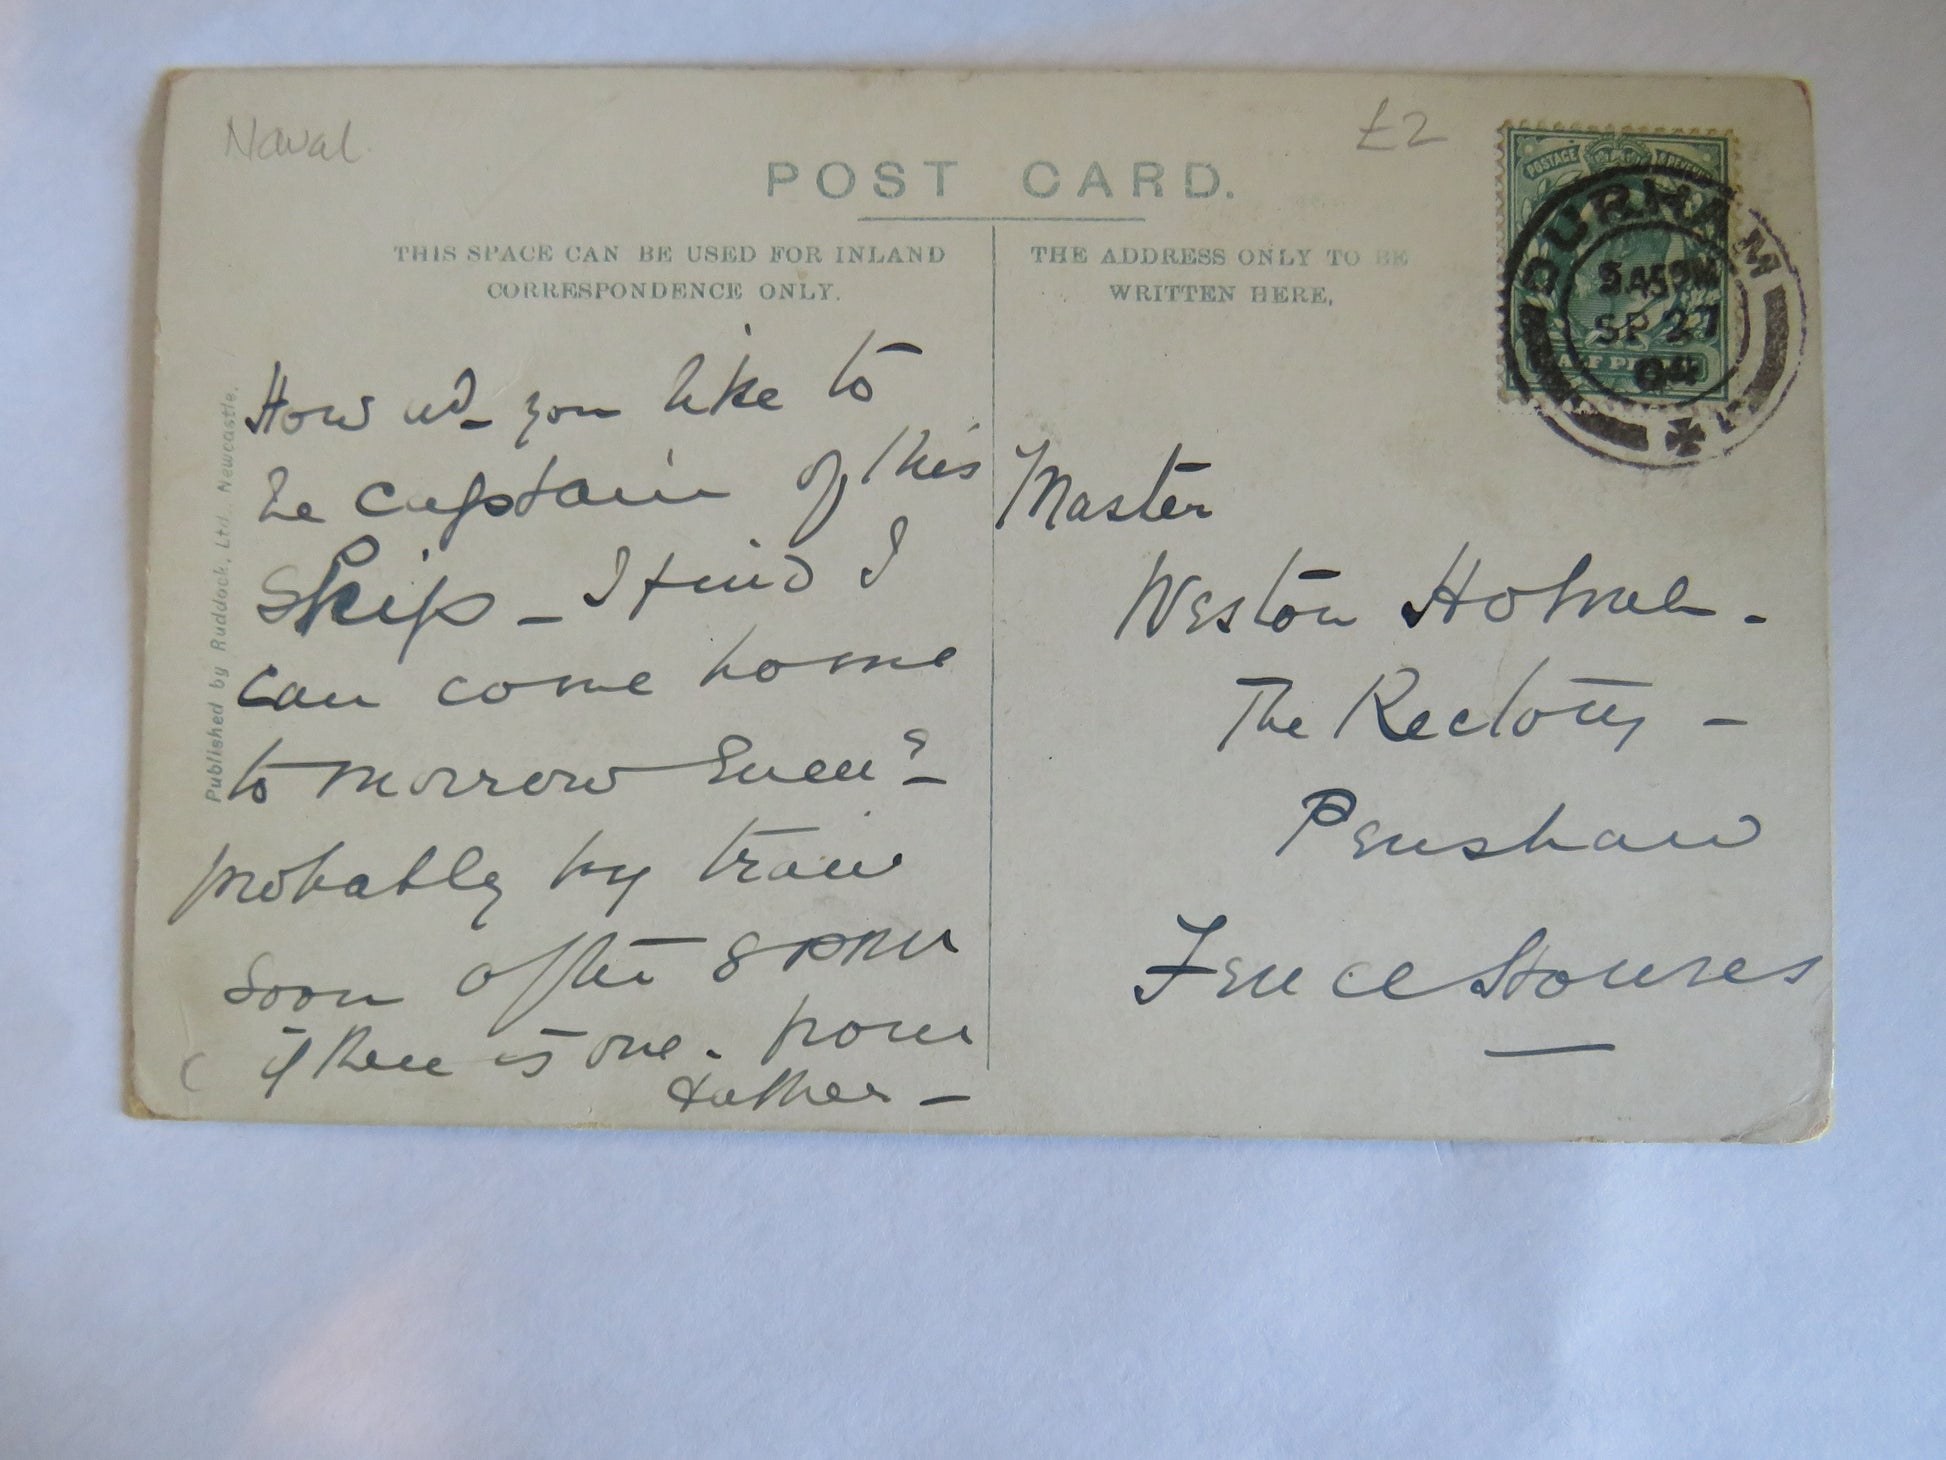 Naval
£2
POST CARD.
THIS SPACE CAN BE USED FOR INLAND
CORRESPONDENCE ONLY.
THE ADDRESS ONLY TO BE
WRITTEN HERE,
POSTAGE
DURHAM
5.45PM
SP 27
04
Published by Ruddock, Ltd., Newcastle.
How wd- you like to
be captain of this
Ship - I find I
can come home
to morrow Even^g-
probably by train
soon after 8 PM
if there is one. from
father -
Master
Weston
The Rectory -
Penshaw
Fence Houses